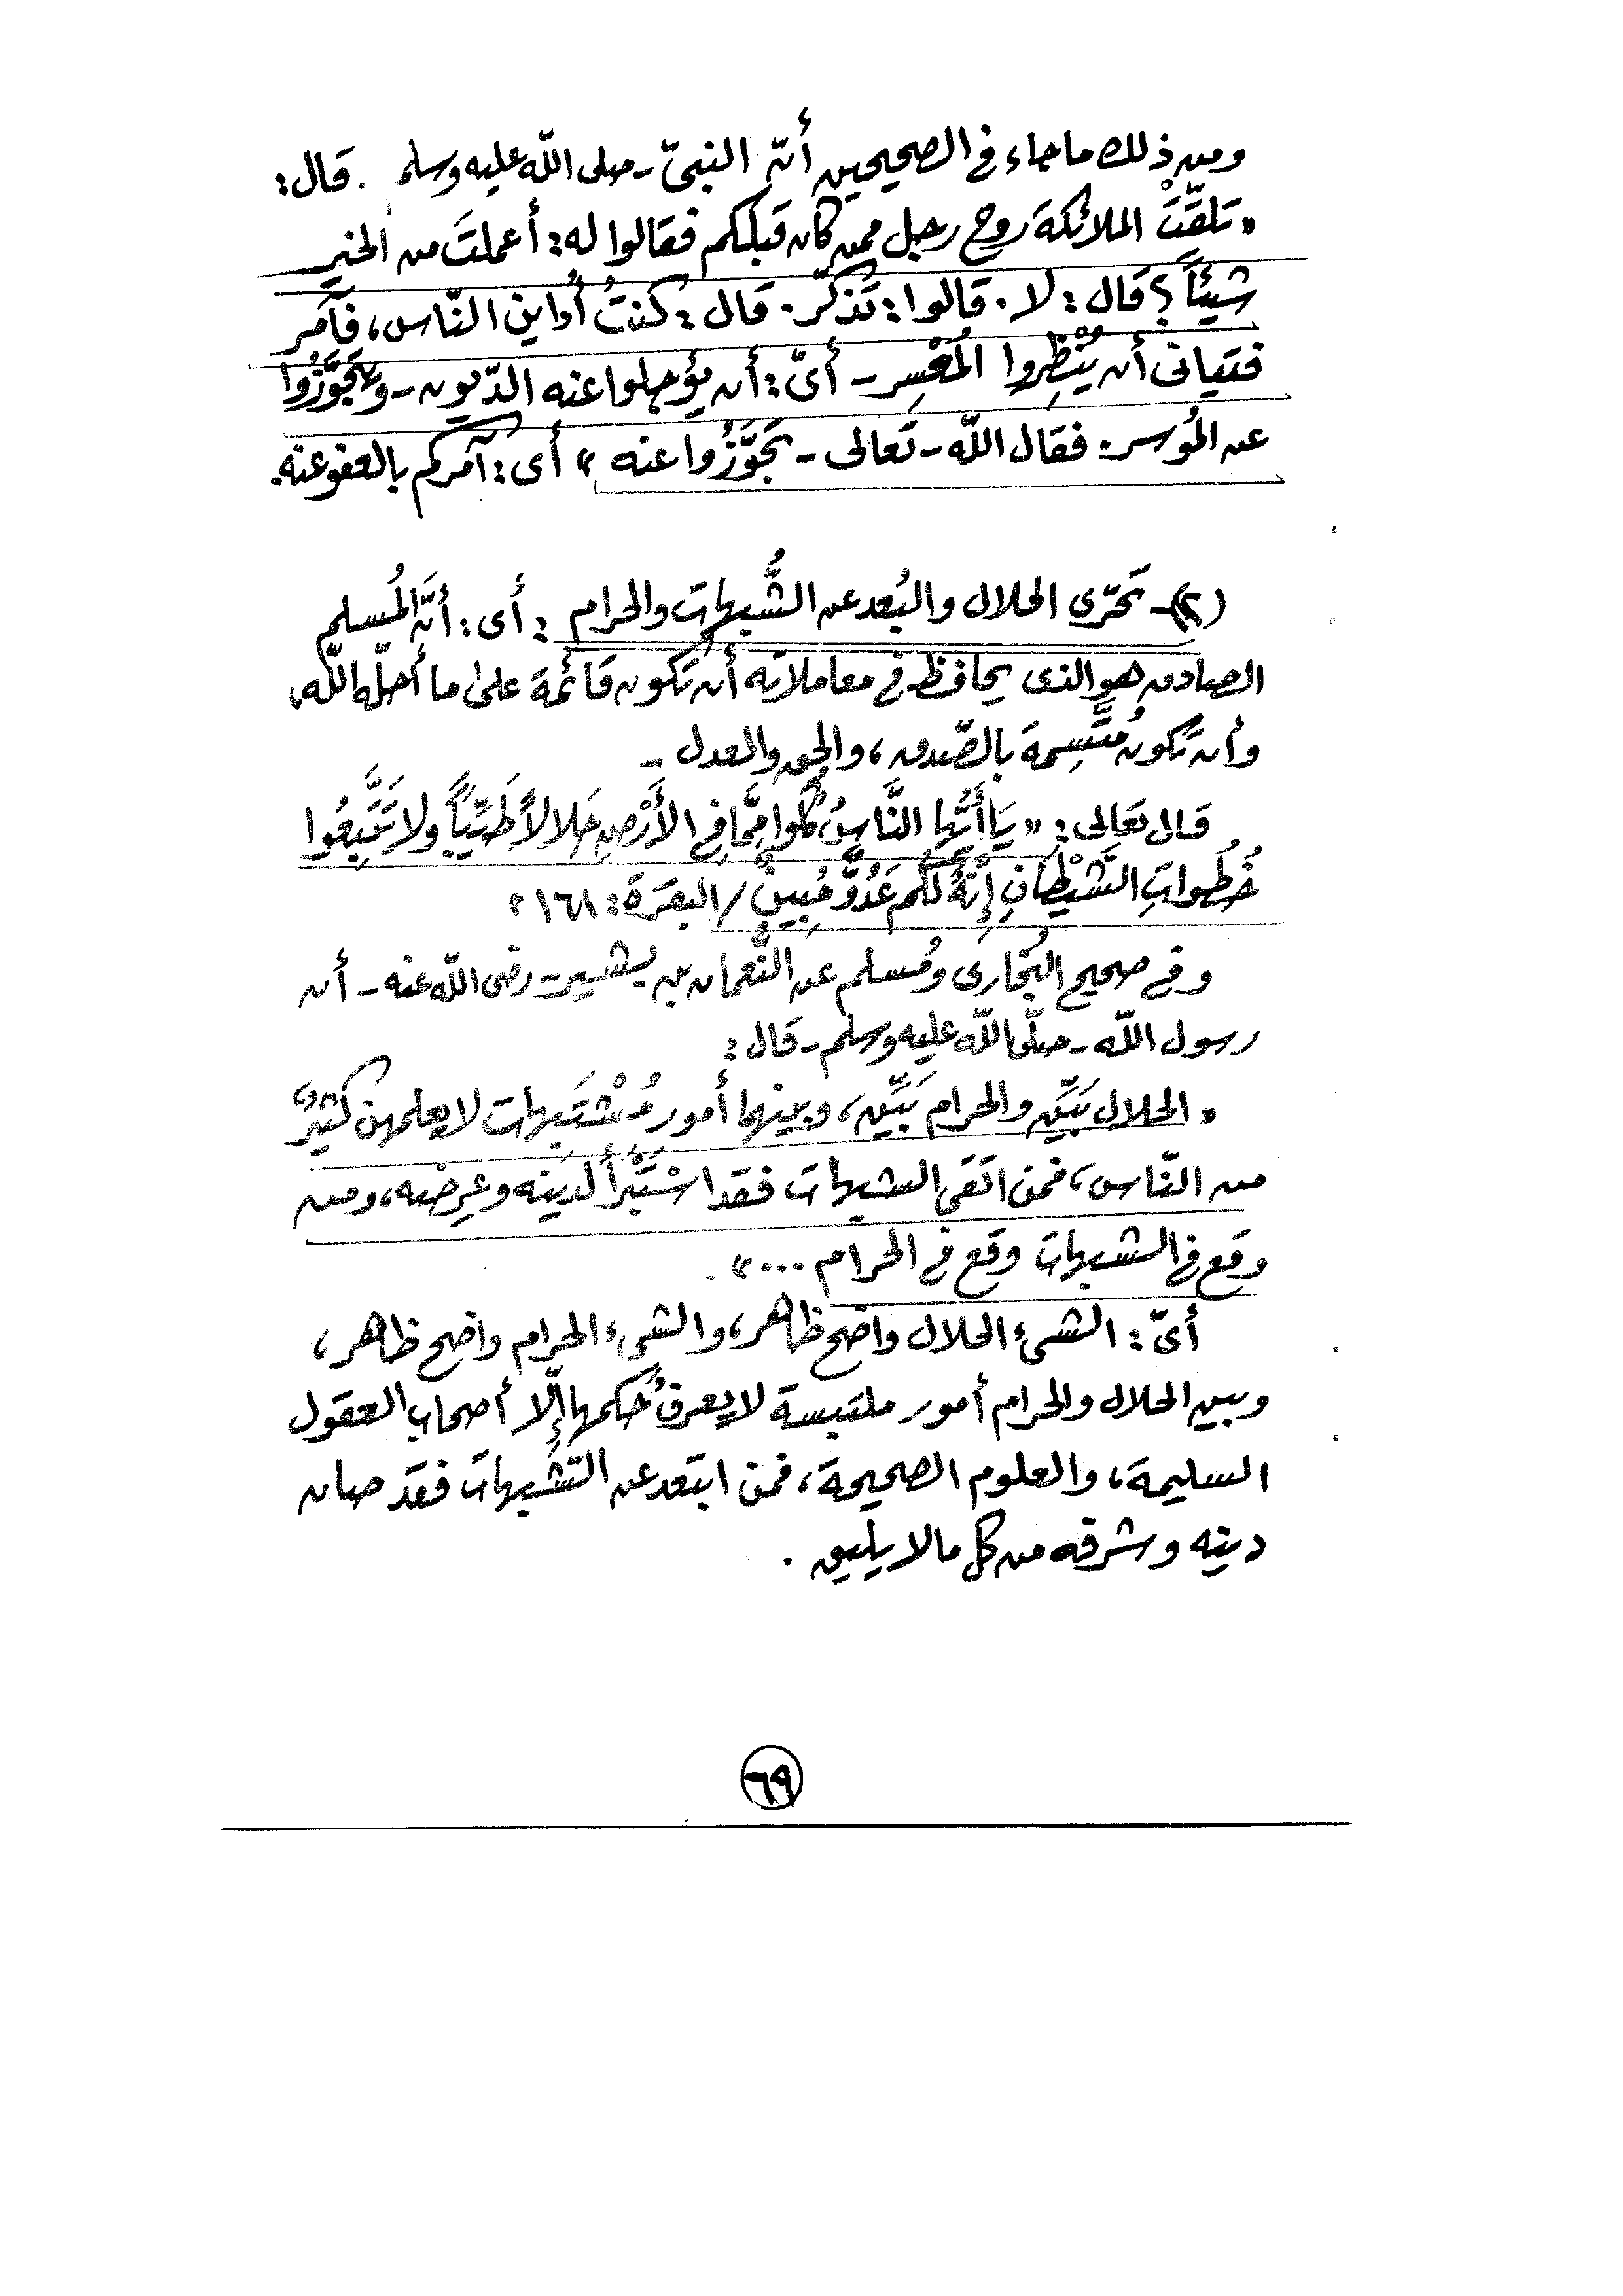 ومن ذلك ما جاء فى الصحيحين أنّ النبىّ - صلى اللّه عليه وسلم . قال:
« تَلقَّتْ الملائكة روح رجل ممن كان قبلكم فقالوا له: أعملتَ من الخير
شيئاً؟ قال: لا. قالوا: تذكّر. قال: كنتُ أُداين النّاس، فآمر
فتيانى أن يُنْظِروا المُعْسِر - أىّ: أن يؤجلوا عنه الدّيون - ويتجَوَّزُوا
عن المُوسر. فقال اللّه - تعالى - تَجَوَّزُوا عنه » أى: آمركم بالعفو عنه.
(٢) - تَحَرّى الحلال والبُعد عن الشُّبهات والحرام: أى: أنّ المُسلم
الصادق هو الذى يحافظ فى معاملاته أن تكون قائمة على ما أحلّه اللّه،
وأن تكون مُتَّسِمة بالصّدق، والحق والعدل -
قال تعالى: « يَا أَيُّها النَّاسُ كُلوا مِمَّا فِى الأَرْضِ حَلالاً طَيّباً ولا تَتَّبِعُوا
خُطُواتِ الشَّيْطانِ إِنَّهُ لَكُم عَدُوٌّ مُبِينٌ / البقرة: ١٦٨ »
وفى صحيح البُخارى ومُسلم عن النُّعمان بن بشير - رضى اللّه عنه - أن
رسول اللّه - صلّى اللّه عليه وسلم - قال:
« الحلال بَيِّن والحرام بَيِّن، وبينهما أمور مُشْتَبهات لا يعلمهن كثيرٌ
من النّاس، فمن اتقى الشبهات فقد اسْتَبْرأ لدينه وعِرضه، ومن
وقع فى الشبهات وقع فى الحرام .... ».
أىّ: الشىء الحلال واضح ظاهر، والشىء الحرام واضح ظاهر،
وبين الحلال والحرام أمور ملتبسة لا يعرفُ حُكمها إلّا أصحاب العقول
السليمة، والعلوم الصحيحة، فمن ابتعد عن الشُّبهات فقد صان
دينه وشرفه من كل ما لا يليق.
٦٩